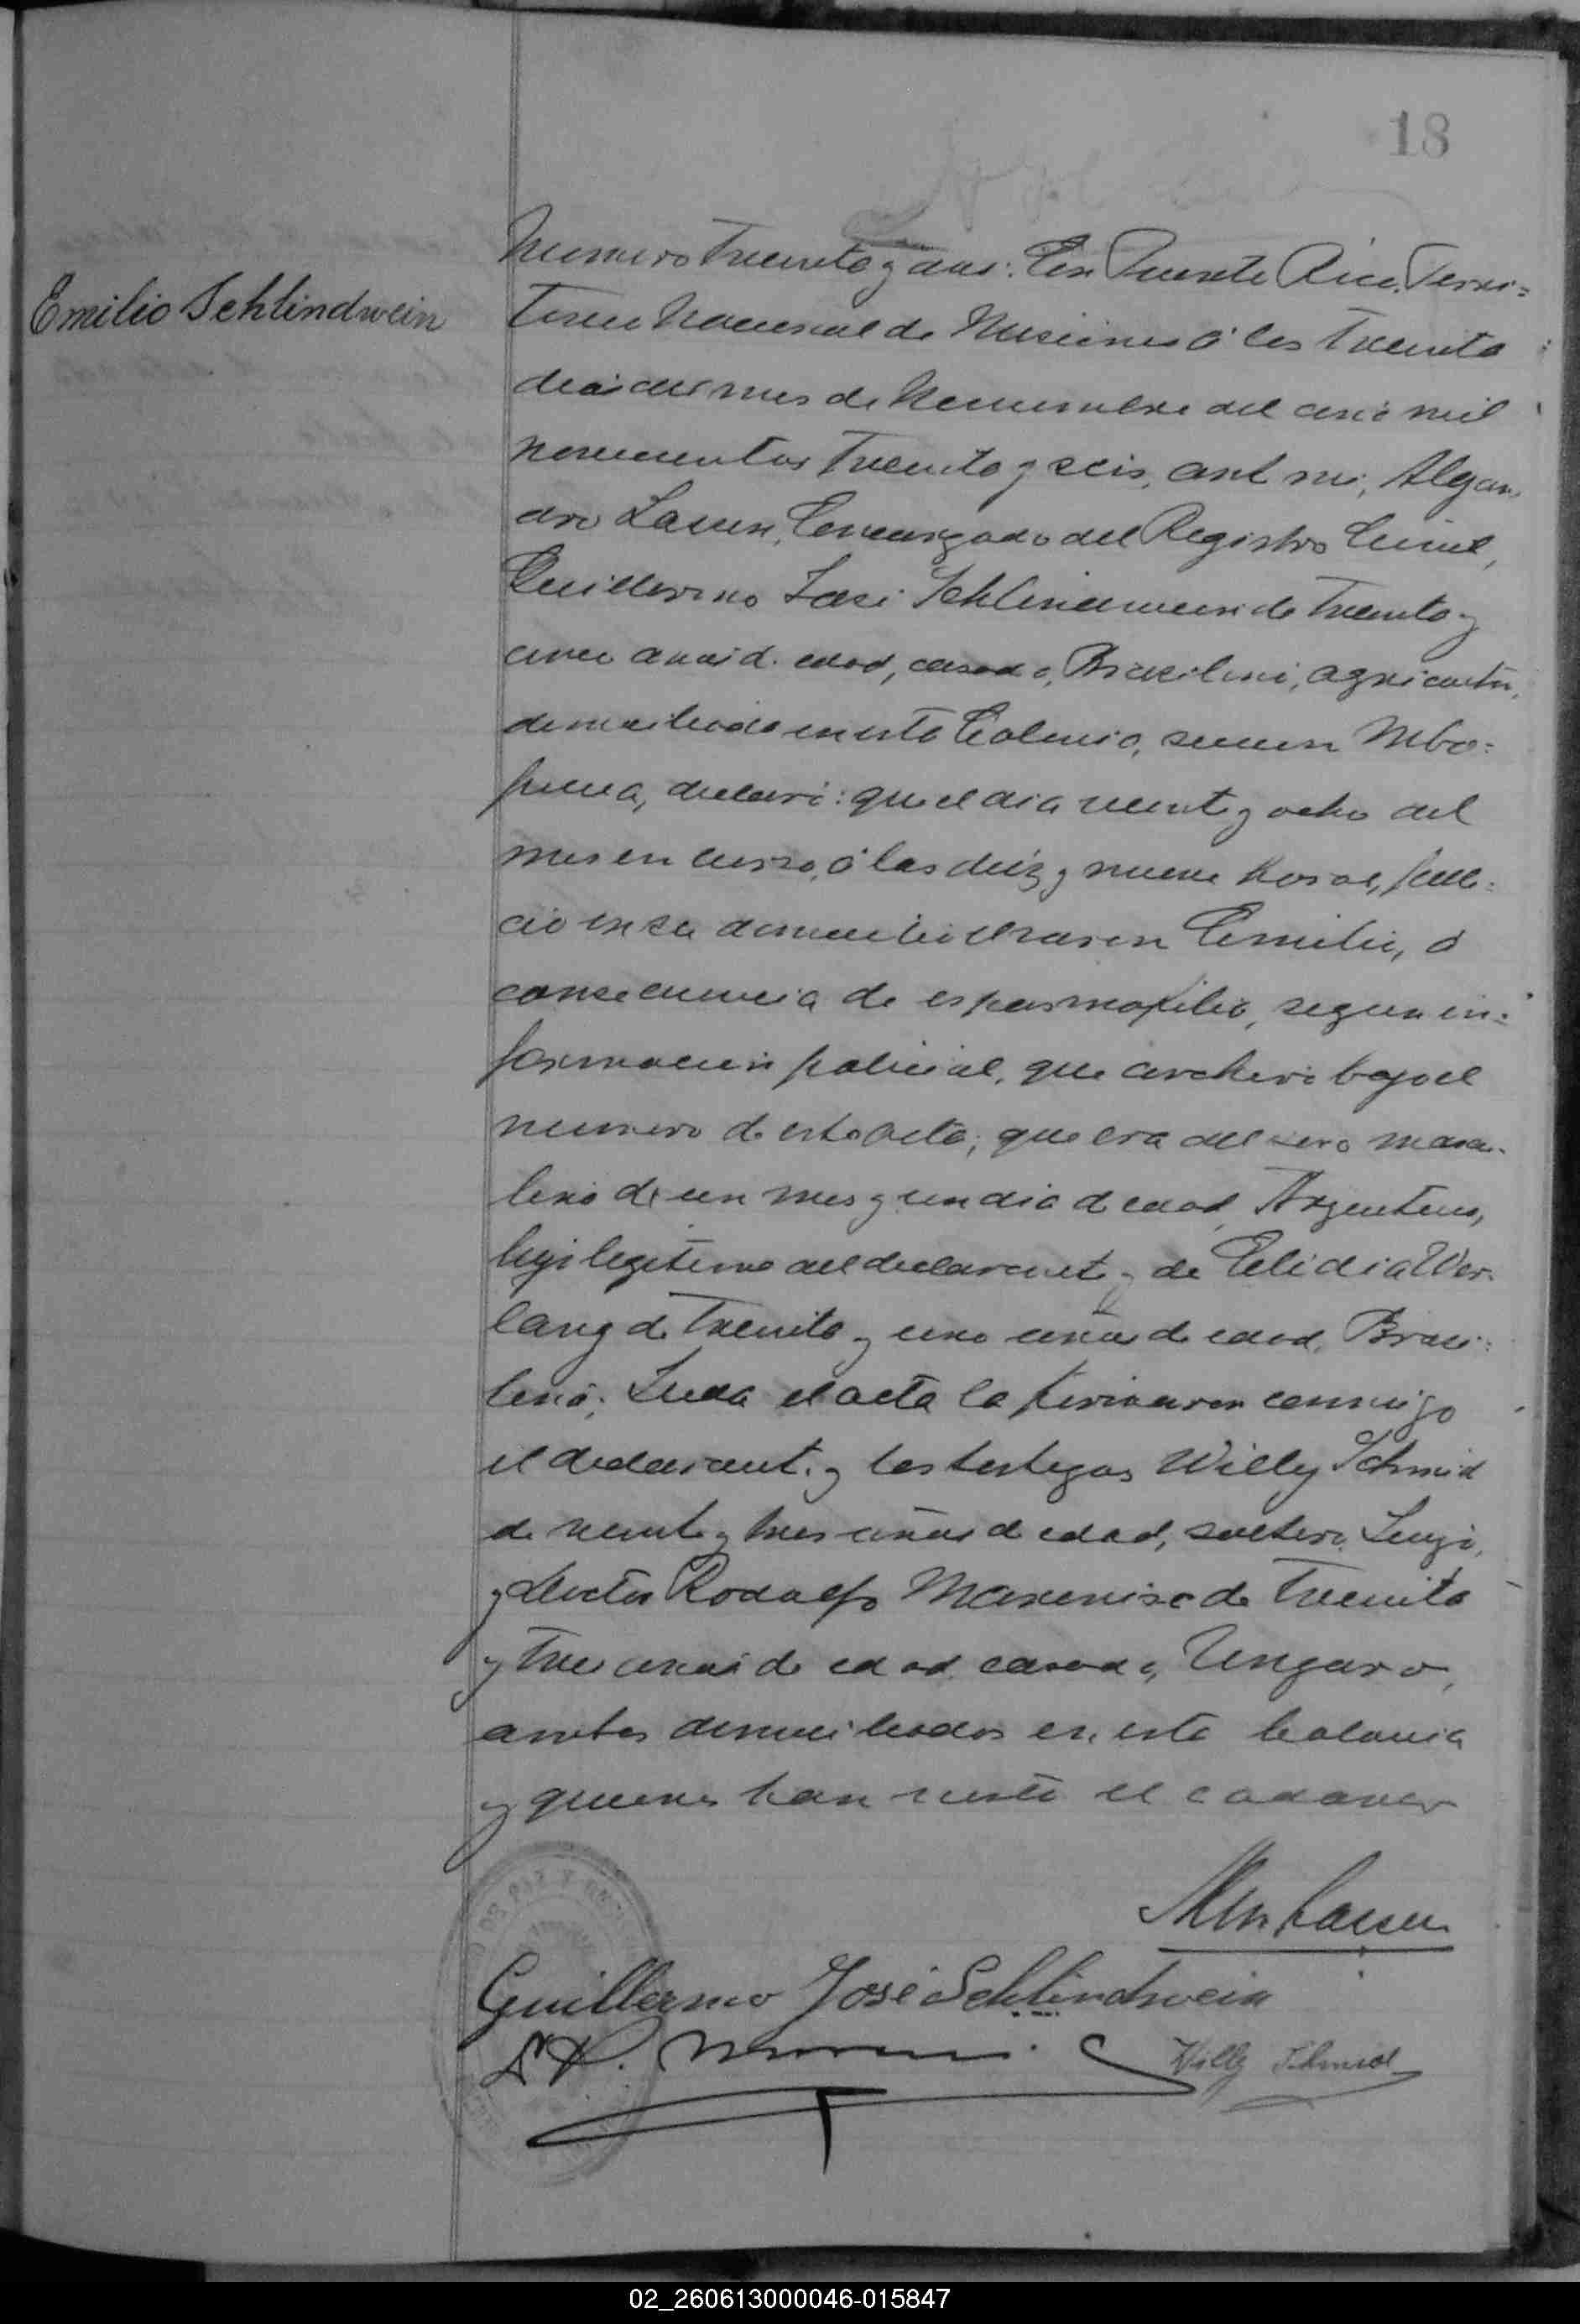 18
Emilio Schlindwein
Numero Treinta y dos: En Puerto Rico, Terri=
torio Nacional de Misiones á los Treinta
dias del mes de Noviembre del año mil
novecientos Treinta y seis, ante mi, Alejan
dro Lassen, Encargado del Registro Civil,
Guillermo José Schlindwein de Treinta y
cinco años de edad, casado, Brasilero, agricultor,
domiciliado en esta Colonia, seccion Mbo=
picua, declaró: que el dia veinte y ocho del
mes en curso, á las diez y nueve horas, falle=
ció en su domicilio el varon Emilio, á
consecuencia de espasmofilia, segun in=
formacion policial, que archivo bajo el
numero de esta acta; que era del sexo mascu-
lino de un mes y un dia de edad, Argentino,
hijo legitimo del declarante y de Elidia Wer-
lang de Treinta y uno años de edad, Brasi=
lera; Leida el acta la firmaron conmigo
el declarante y los testigos Willy Schmid
de veinte y tres años de edad, soltero, Suizo,
y Doctor Rodolfo de Treinta
y Tres años de edad, casado, Ungaro,
ambos domiciliados en esta Colonia
y quienes han visto el cadaver
Guillermo José Schlindwein
Willy Schmid
02_260613000046-015847